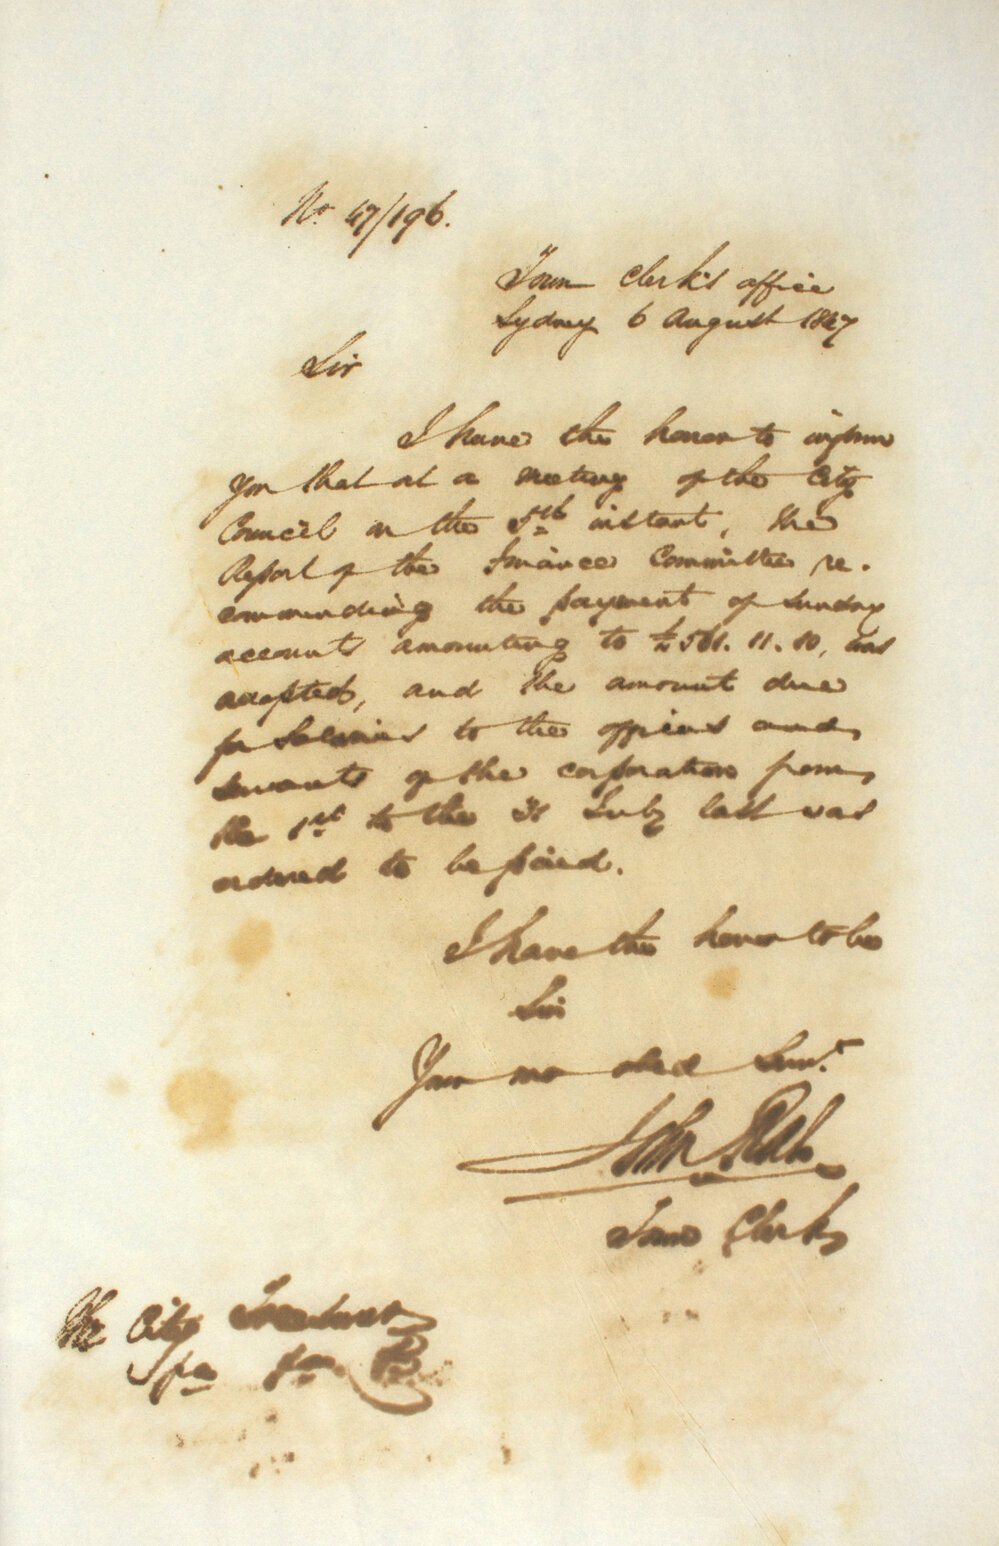 No 47/196.
Town Clerk's office
Sydney 6 August 1847
Sir
I have the honor to inform
you that at a meeting of the City
Council on the 5th instant, the
Report of the Finance Committee re-
commending the payment of sundry
accounts amounting to £561. 11. 10, was
adopted, and the amount due
for Salaries to the officers and
servants of the corporation from
the 1st to the 31 July last was
ordered to be paid.
I have the honor to be
Sir
Your mo obed Servt.
John Rae
Town Clerk
The City Treasurer